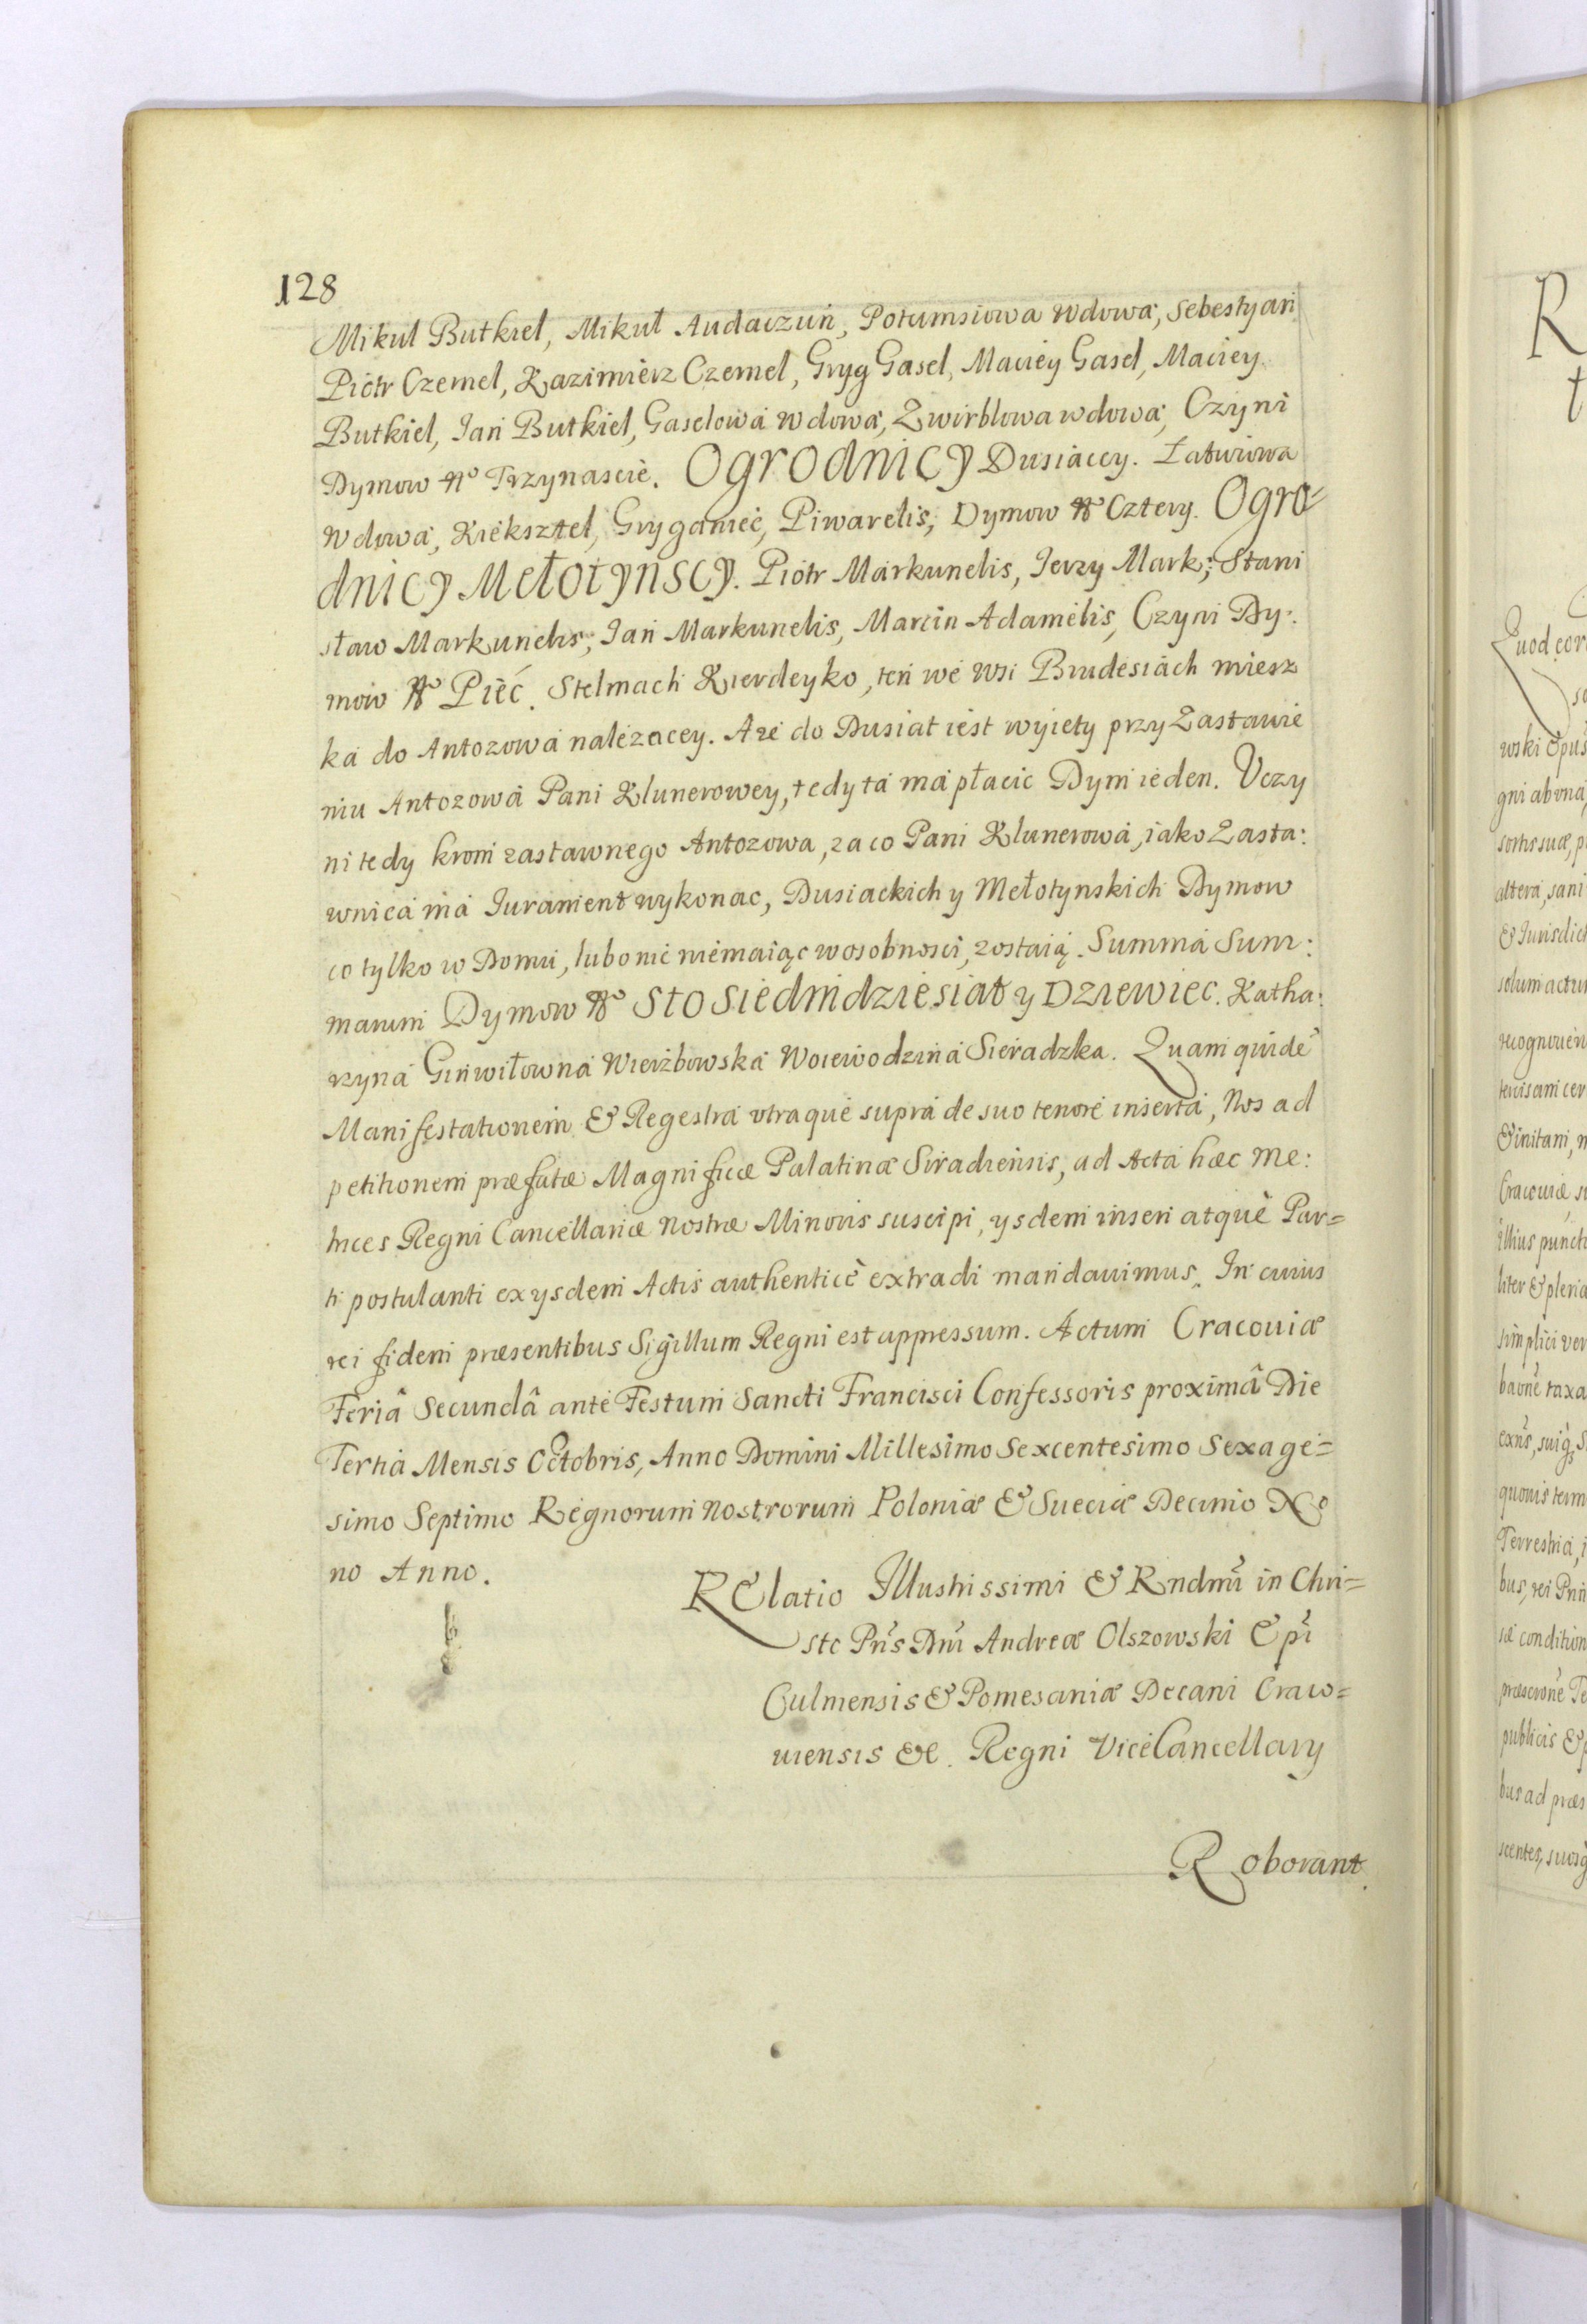 128
Mikul Butkiel, Mikuł Audaczun, Potumsiowa Wdowa, Sebestyan
Piotr Czemel, Kazimierz Czemel, Gryg Gasel, Maciey Gasel, Maciey
Butkiel, Jan Butkiel, Gaselowa Wdowa, Zwirblowa wdowa, Czyni
Dymow No Trzynascie. Ogrodnicy Dusiaccy. Łatwiowa
Wdowa, Kieksztel, Gryganiec, Piwarelis, Dymow No Cztery. Ogro=
dnicy Mełotynscy. Piotr Markunelis, Jerzy Mark; Stani
sław Markunelis, Jan Markunelis, Marcin Adamelis, Czyni Dy:
mow No Pięć. Stelmach Kierdeyko, ten we Wsi Brudesiach miesz
ka do Antozowa nalezacey. A ze do Dusiat iest wyiety przy Zastawie
niu Antozowa Pani Klunerowey, tedy ta ma płacic Dym ieden. Vczy
ni tedy krom zastawnego Antozowa, za co Pani Klunerowa, iako Zasta:
wnica ma Iurament wykonac, Dusiackich y Mełotynskich Dymow
co tylko w Domu, lubo nic niemaiąc w osobnosci, zostaią. Summa Sum:
marum Dymow No Sto Siedmdziesiat y Dziewiec. Katha:
rzyna Ginwiłowna Wierzbowska Woiewodzina Sieradzka. Quam quidē
Manifestationem & Regestra vtraque supra de suo tenore inserta, Nos ad
petitionem præfatæ Magnificæ Palatinæ Siradiensis, ad Acta hæc Me:
trices Regni Cancellariæ Nostræ Minoris suscipi, ysdem inseri atquè Par=
ti postulanti ex ysdem Actis authenticè extradi mandauimus. In cuius
rei fidem præsentibus Sigillum Regni est appressum. Actum Cracouiæ
Feriâ Secundâ ante Festum Sancti Francisci Confessoris proximâ Die
Tertia Mensis Octobris, Anno Domini Millesimo Sexcentesimo Sexage=
simo Septimo Regnorum Nostrorum Poloniæ & Sueciæ Decimo No
no Anno.
Relatio Illustrissimi & Rndmi in Chri=
sto Pris Dni Andreæ Olszowski Epi
Culmensis & Pomesaniæ Decani Craco=
uiensis &c. Regni ViceCancellary
Roborant.
R
t
Quod cor
wski Epus
gni ab vna
sortis suæ, p
altera, sani
& Iurisdict
solum actu
recognouer
Cracouiæ s
illius punct
liter & plena
simplici ver
Terrestria, i
sæ condition
publicis &
bus ad præs